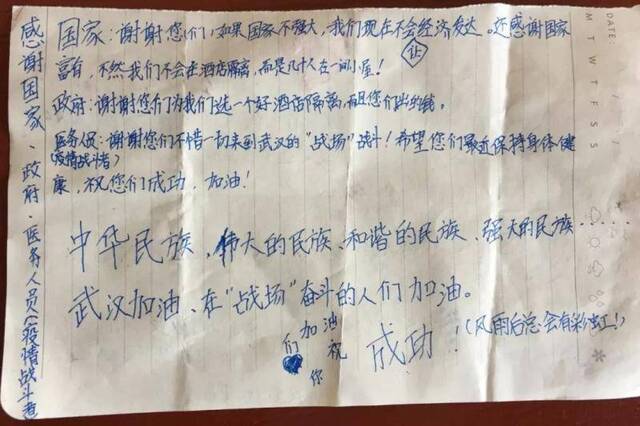 感谢国家、政府、医务人员(疫情战斗者
国家:谢谢您(们)如果国家不强大,我们现在不会经济发达。还感谢国家
让
富有,不然我们不会在酒店隔离,而是几十人在一间屋!
政府:谢谢您们为我们选一个好酒店隔离,而且您们出的钱。
医务人员:谢谢您们不惜一切来到武汉的“战场”战斗!希望您们最近保持身体健
(疫情战斗者)
康,祝您们成功,加油!
中华民族、伟大的民族、和谐的民族、强大的民族......
武汉加油、在“战场”奋斗的人们加油。
加油祝你们
成功!(风雨后总会有彩虹!)
DATE
M T W T F S S